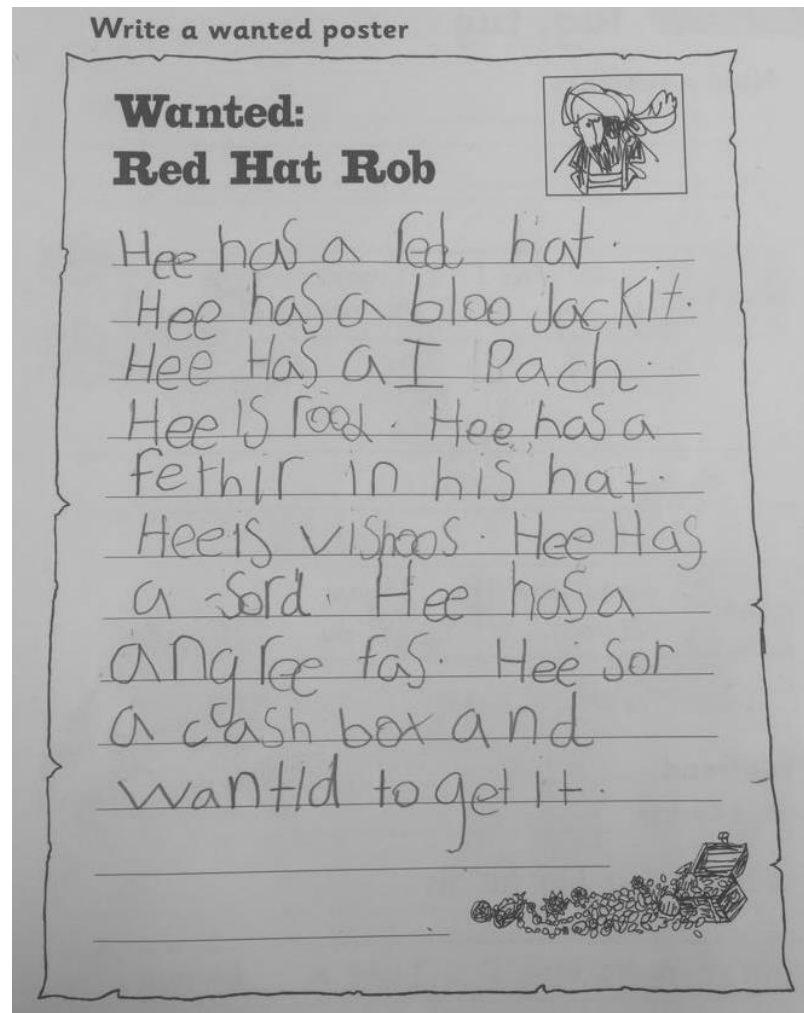 Write a wanted poster
Wanted:
Red Hat Rob
Hee has a red hat.
Hee has a bloo jackit.
Hee Has a I Pach.
Hee is rood. Hee has a
fethir in his hat.
Hee is vishoos. Hee Has
a sord. Hee has a
angree fas. Hee sor
a cash box and
wantid to get it.